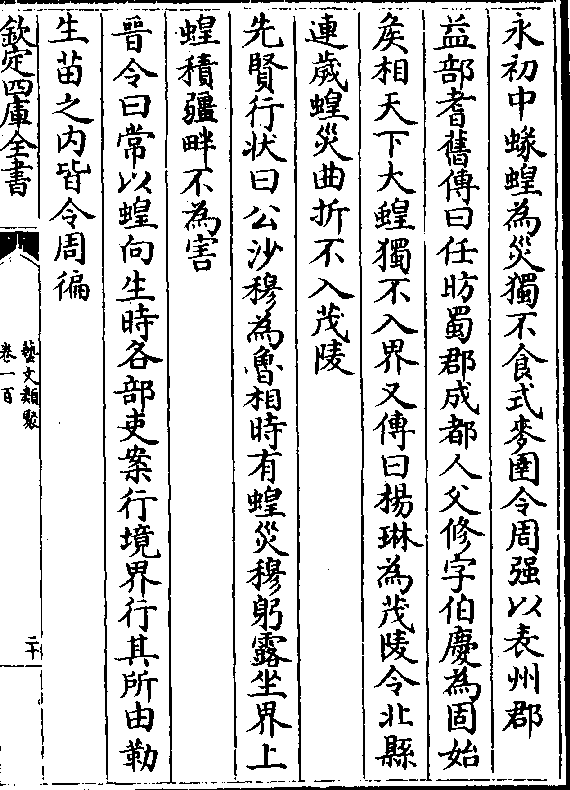 永初中蝝蝗為災獨不食式麥圉令周强以表州郡
益部耆舊傳曰任昉蜀郡成都人父修字伯慶為固始
矦相天下大蝗獨不入界又傳曰楊琳為茂陵令北縣
連歲蝗災曲折不入茂陵
先賢行狀曰公沙穆為魯相時有蝗災穆躬露坐界上
蝗積疆畔不為害
晉令曰常以蝗向生時各部吏案行境界行其所由勒
生苗之内皆令周徧
欽定四庫全書
藝文類聚
卷一百
二十